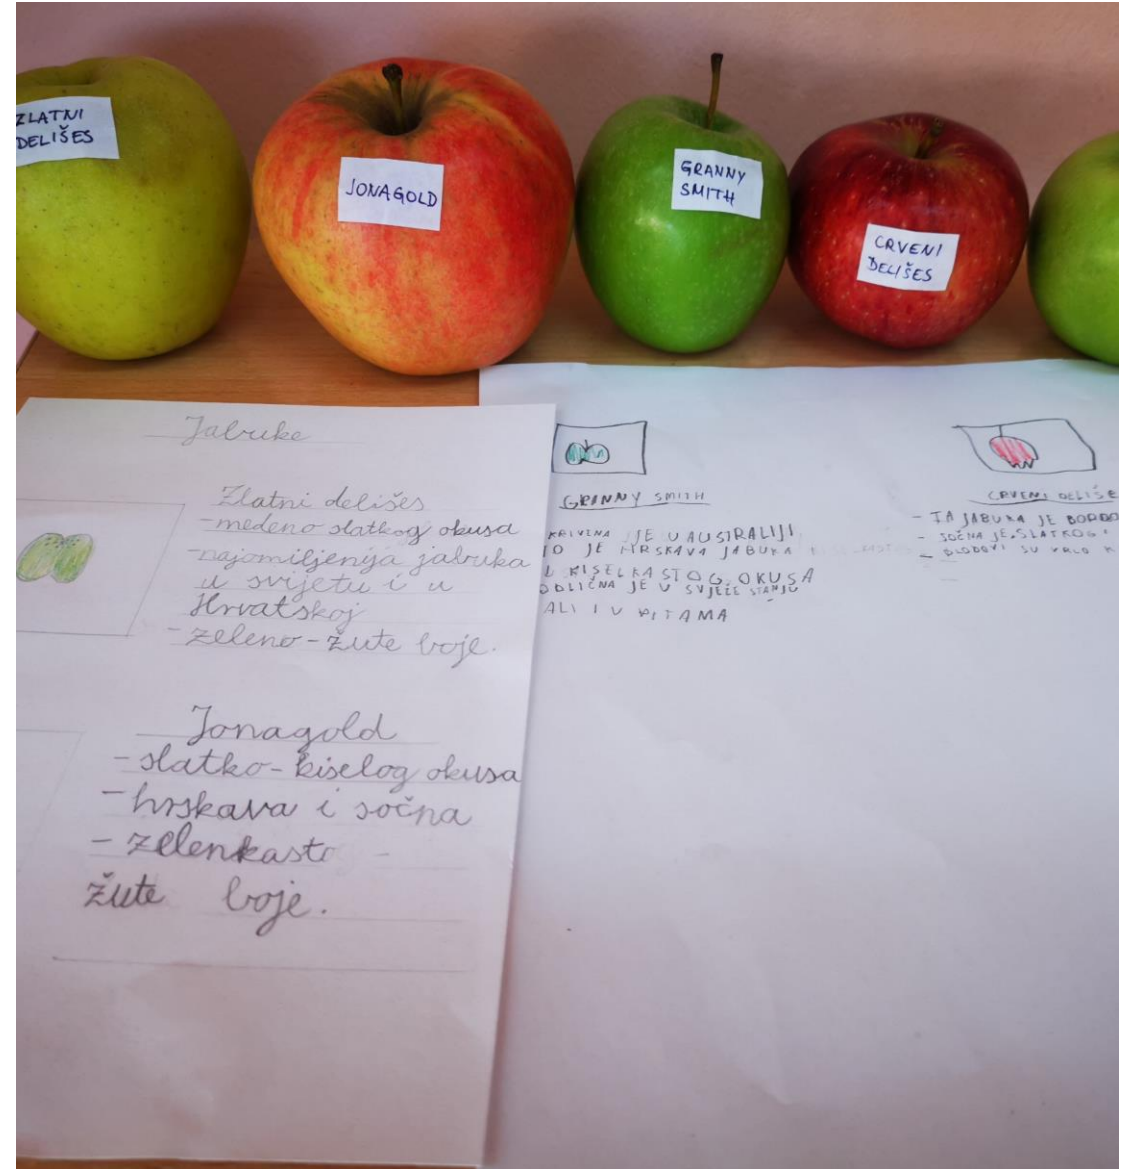 ZLATNI
DELIŠES
JONAGOLD
GRANNY
SMITH
CRVENI
DELIŠES
Jabuke
Zlatni delišes
- medeno slatkog okusa
- najomiljenija jabuka
u svijetu i u
Hrvatskoj
- zeleno - žute boje.
Jonagold
- slatko - kiselog okusa
- hrskava i sočna
- zelenkasto -
žute boje.
GRANNY SMITH
KRIVENA JE U AUSTRALIJI
TO JE HRSKAVA JABUKA
KISELKASTOG OKUSA
ODLIČNA JE U SVJEŽE STANJU
ALI I U PITAMA
CRVENI DELIŠE
- TA JABUKA JE BORDO
- SOČNA JE, SLATKOG
- PLODOVI SU VRLO K